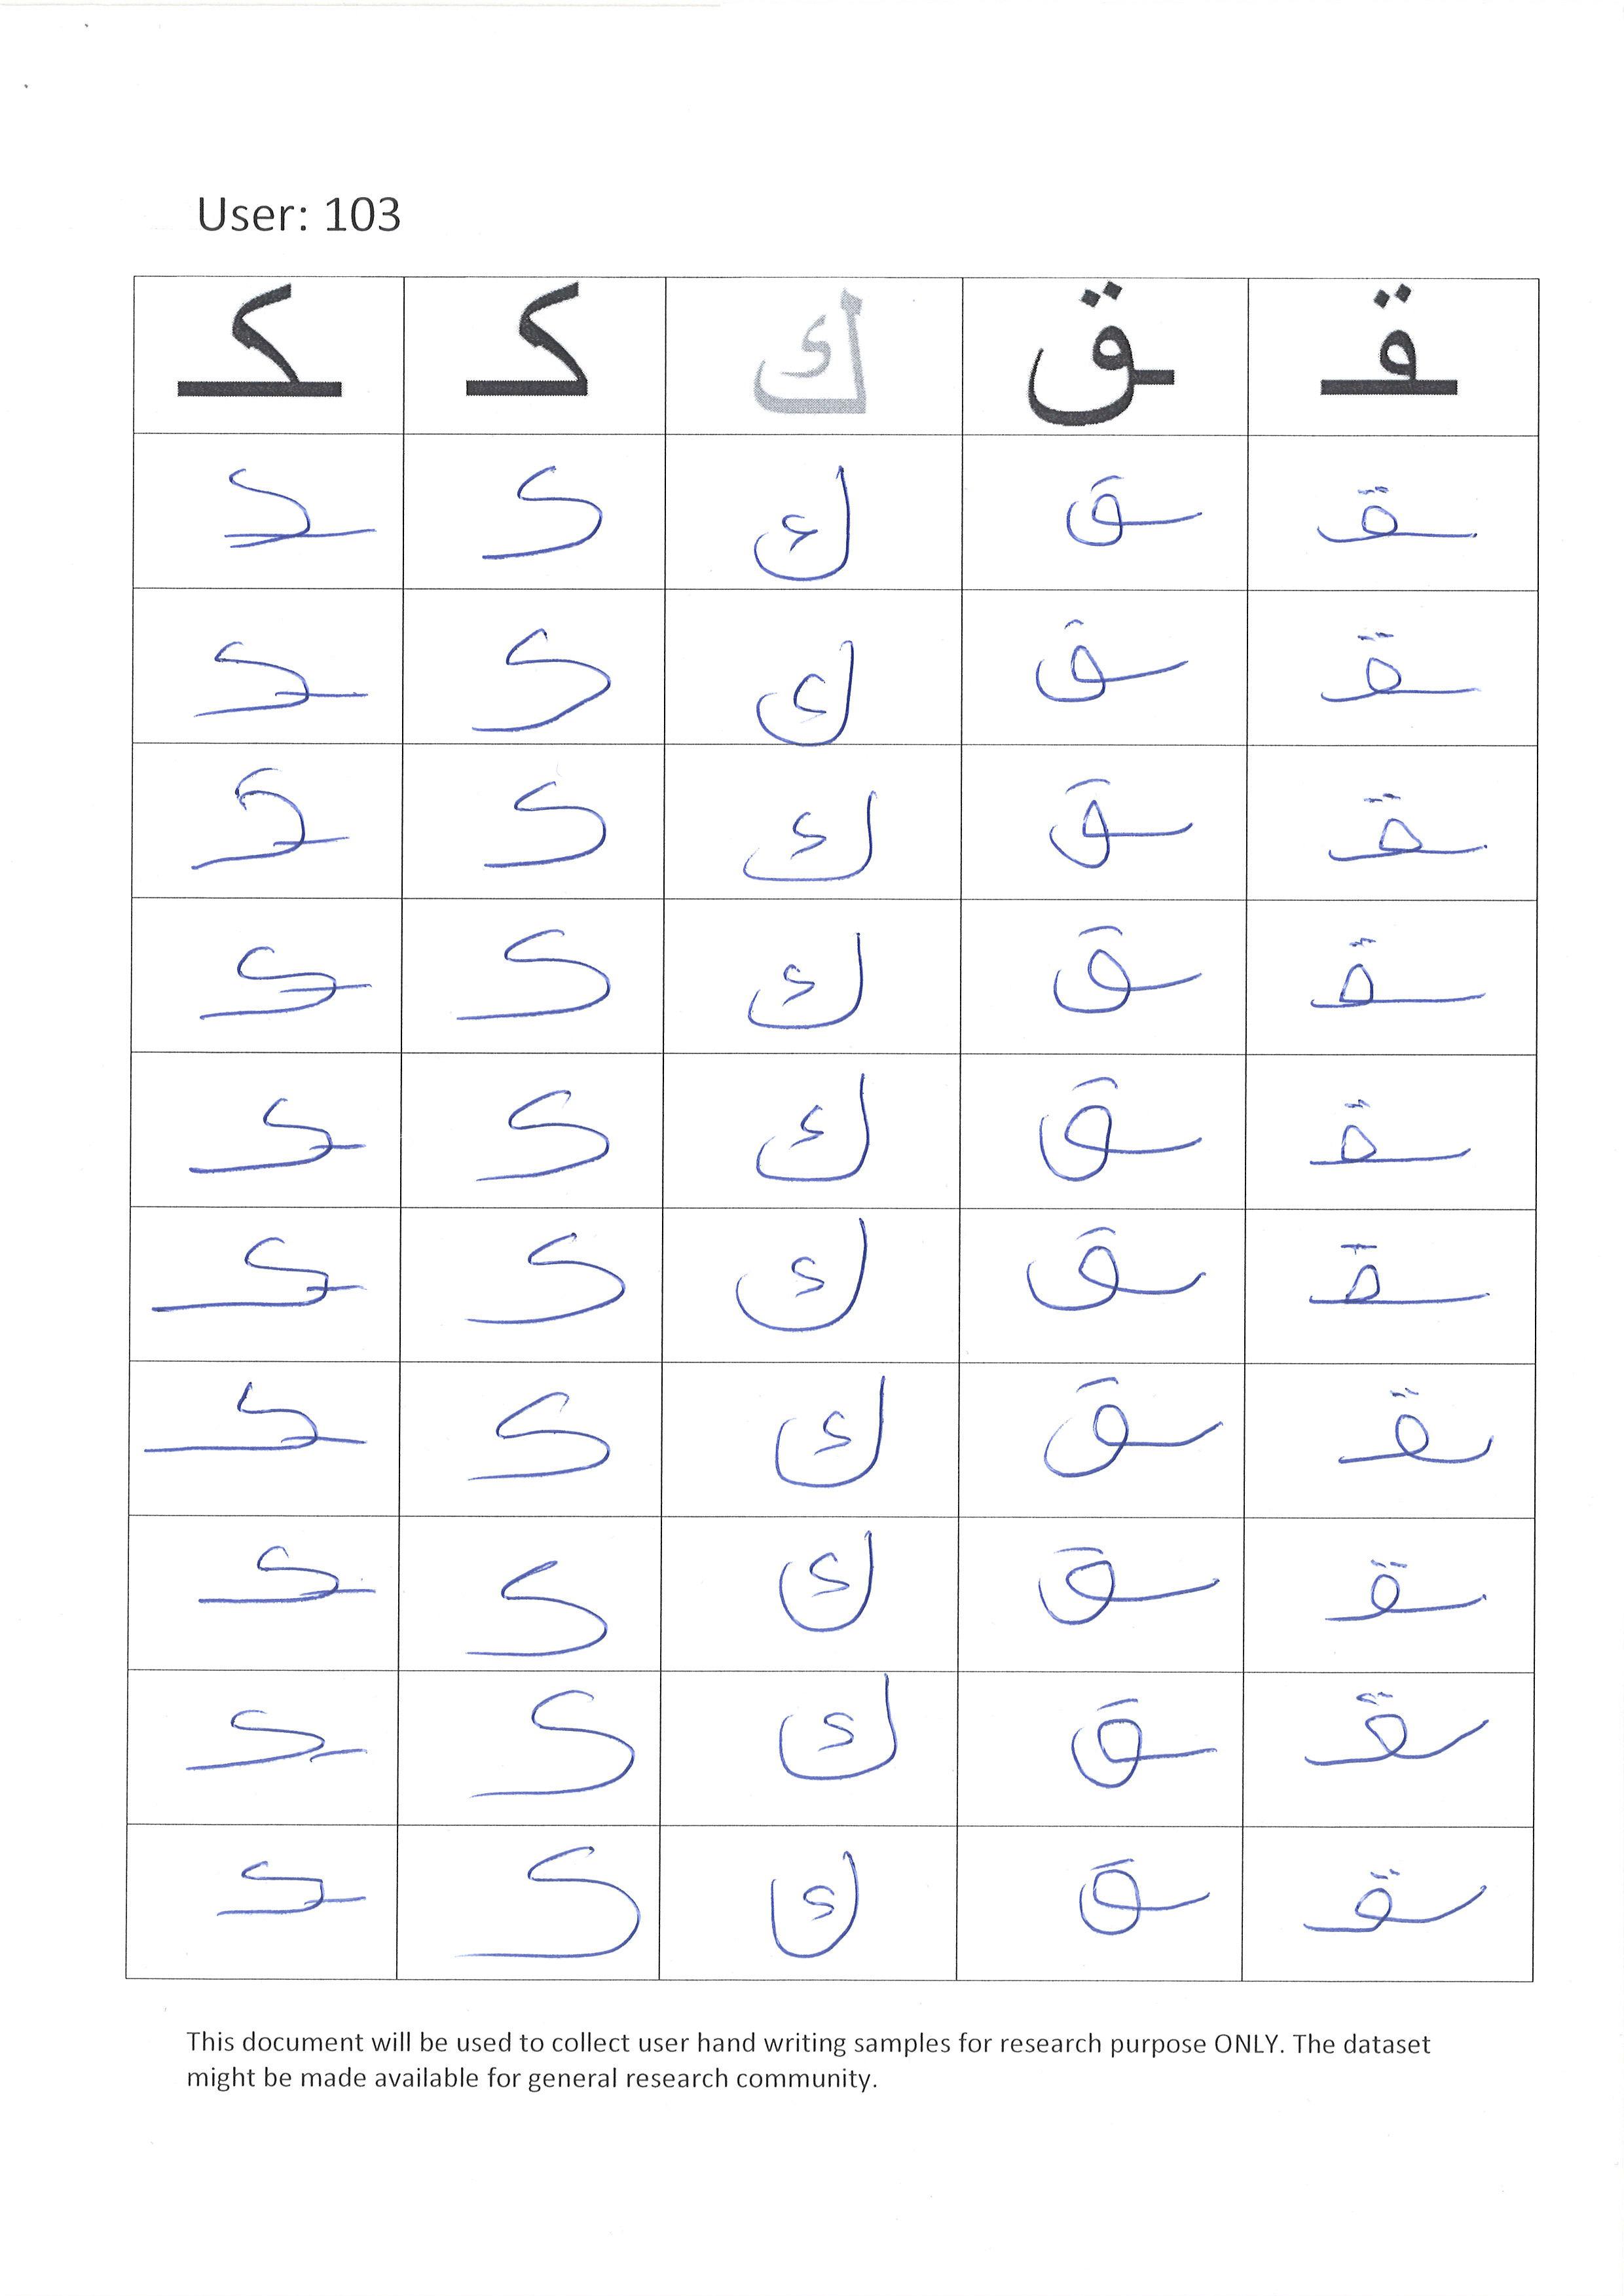 User: 103
ـكـ كـ ك ـق ـقـ
ـكـ كـ ك ـق ـقـ
ـكـ كـ ك ـق ـقـ
ـكـ كـ ك ـق ـقـ
ـكـ كـ ك ـق ـقـ
ـكـ كـ ك ـق ـقـ
ـكـ كـ ك ـق ـقـ
ـكـ كـ ك ـق ـقـ
ـكـ كـ ك ـق ـقـ
ـكـ كـ ك ـق ـقـ
ـكـ كـ ك ـق ـقـ
This document will be used to collect user hand writing samples for research purpose ONLY. The dataset
might be made available for general research community.